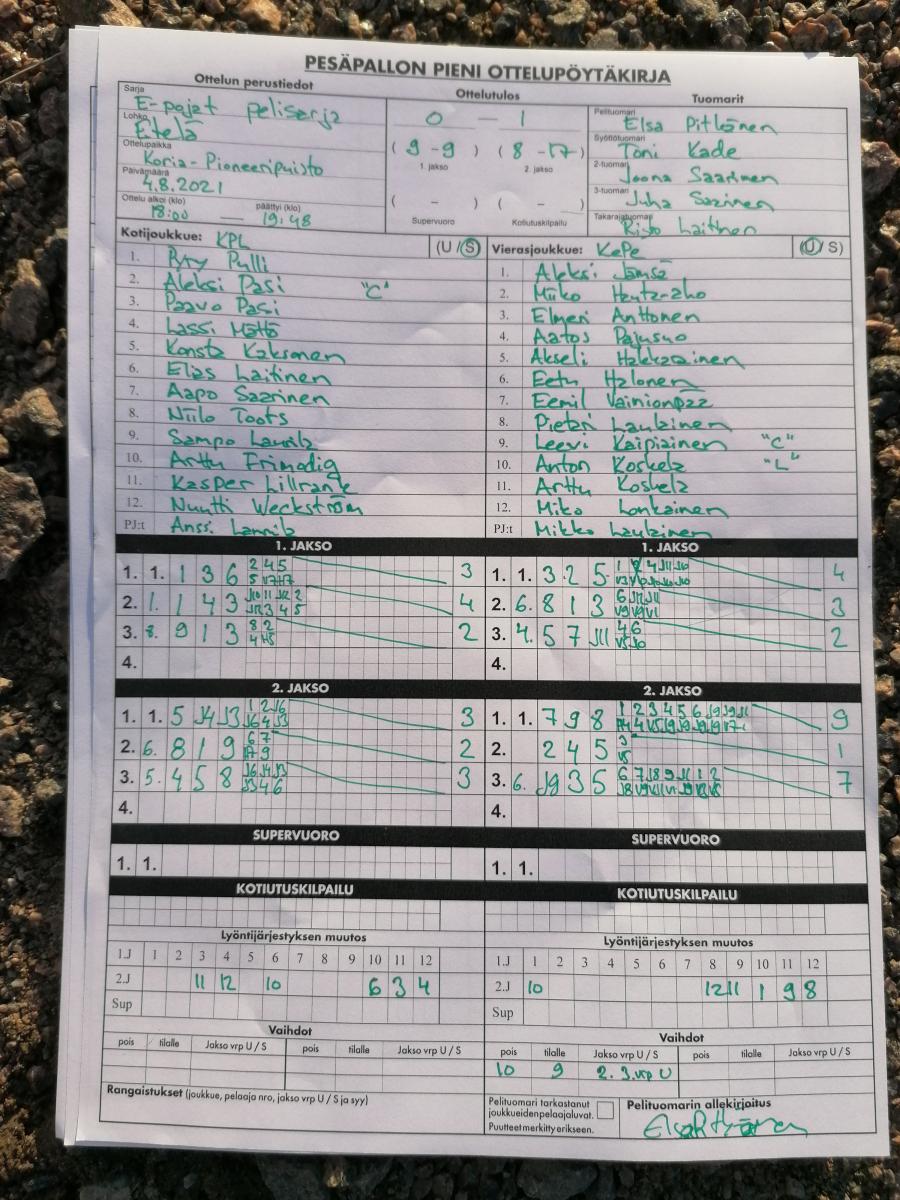 PESÄPALLON PIENI OTTELUPÖYTÄKIRJA
Ottelun perustiedot
Ottelutulos
Tuomarit
Sarja
E-pojat pelisarja
Lohko
Etelä
Ottelupaikka
Koria-Pioneeripuisto
Päivämäärä
4.8.2021
Ottelu alkoi (klo) päättyi (klo)
18:00 — 19:48
0 — 1
( 9 - 9 ) ( 8 - 17 )
1. jakso 2. jakso
( - ) ( - )
Supervuoro Kotiutuskilpailu
Pelituomari
Elsa Pitkänen
Syöttötuomari
Toni Kade
2-tuomari
Joona Saarinen
3-tuomari
Juha Saarinen
Takarajatuomari
Risto Laitinen
Kotijoukkue: KPL (U / S)
1. Pyry Pulli
2. Aleksi Pasi "C"
3. Paavo Pasi
4. Lassi Mättö
5. Konsta Kaksonen
6. Elias Laitinen
7. Aapo Saarinen
8. Niilo Toots
9. Sampo Lannila
10. Arttu Frimodig
11. Kasper Lillrank
12. Nuutti Weckström
PJ:t Anssi Lannila
Vierasjoukkue: KePe (U / S)
1. Aleksi Jämsä
2. Miiko
3. Elmeri Anttonen
4. Aatos Pajusuo
5. Akseli Hakkarainen
6. Eetu Halonen
7. Eemil Vainionpää
8. Pietari Laukainen
9. Leevi Kaipiainen "C"
10. Anton Koskela "L"
11. Arttu Koskela
12. Miko Lonkainen
PJ:t Mikko Laukainen
1. JAKSO
1. 1. 1 3 6 3
2. 1. 1 4 3 4
3. 8. 9 1 3 2
4.
1. JAKSO
1. 1. 3 2 5 4
2. 6. 8 1 3 3
3. 4. 5 7 J11 2
4.
2. JAKSO
1. 1. 5 J4 J3 3
2. 6. 8 1 9 2
3. 5. 4 5 8 3
4.
2. JAKSO
1. 1. 7 9 8 9
2. 2 4 5 1
3. 6. J9 3 5 7
4.
SUPERVUORO
1. 1.
SUPERVUORO
1. 1.
KOTIUTUSKILPAILU
KOTIUTUSKILPAILU
Lyöntijärjestyksen muutos
1.J 1 2 3 4 5 6 7 8 9 10 11 12
2.J 11 12 10 6 3 4
Sup
Lyöntijärjestyksen muutos
1.J 1 2 3 4 5 6 7 8 9 10 11 12
2.J 10 12 11 1 9 8
Sup
Vaihdot
pois tilalle Jakso vrp U / S pois tilalle Jakso vrp U / S
Vaihdot
pois tilalle Jakso vrp U / S pois tilalle Jakso vrp U / S
10 9 2. 3.vrp U
Rangaistukset (joukkue, pelaaja nro, jakso vrp U / S ja syy)
Pelituomari tarkastanut
joukkueidenpelaajaluvat.
Puutteet merkitty erikseen.
Pelituomarin allekirjoitus
Elsa Pitkänen